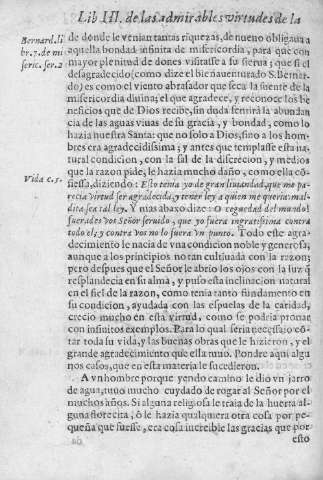 Lib III. de las admirables virtudes de la
Bernard. li
br. 7. de mi
seric. ser. 2
de donde le venian tantas riquezas, de nueuo obligaua a
aquella bondad infinita de misericordia, para que con
mayor plenitud de dones visitasse a su sierua; que si el
desagradecido (como dize el bienauenturado S. Bernar-
do) es como el viento abrasador que seca la fuente de la
misericordia diuina; el que agradece, y reconoce los be
neficios que de Dios recibe, sin duda tendrà la abundan
cia de las aguas viuas de su gracia, y bondad, como lo
hazia nuestra Santa: que no solo a Dios, sino a los hom-
bres era agradecidissima; y antes que templasse esta na
tural condicion, con la sal de la discrecion, y medios
que la razon pide, le hazia mucho daño, como ella cõ-
Vida c. 5.
fiessa, diziendo: Esto tenia yo de gran liuiandad, que me pa-
recia virtud ser agradecida, y tener ley a quien me queria: mal-
dita sea tal ley. Y mas abaxo dize: O ceguedad del mundo!
fuerades vos Señor seruido, que yo fuera ingratissima contra
todo el; y contra vos no lo fuera vn punto. Todo este agra-
decimiento le nacia de vna condicion noble y generosa,
aunque a los principios no tan cultiuada con la razon;
pero despues que el Señor le abrio los ojos con la luz q̃
resplandecia en su alma, y puso esta inclinacion natural
en el fiel de la razon, como tenia tanto fundamento en
su condicion, ayudada con las espuelas de la caridad,
crecio mucho en esta virtud, como se podria prouar
con infinitos exemplos. Para lo qual seria necessario cõ-
tar toda su vida, y las buenas obras que le hizieron, y el
grande agradecimiento que ella tuuo. Pondre aqui algu
nos casos, que en esta materia le sucedieron.
A vn hombre porque yendo camino le dio vn jarro
de agua, tuuo mucho cuydado de rogar al Señor por el
muchos años. Si alguna religiosa le traia de la huerta al-
guna florecita, ò le hazia qualquiera otra cosa por pe-
queña que fuesse, era cosa increible las gracias que por
esto